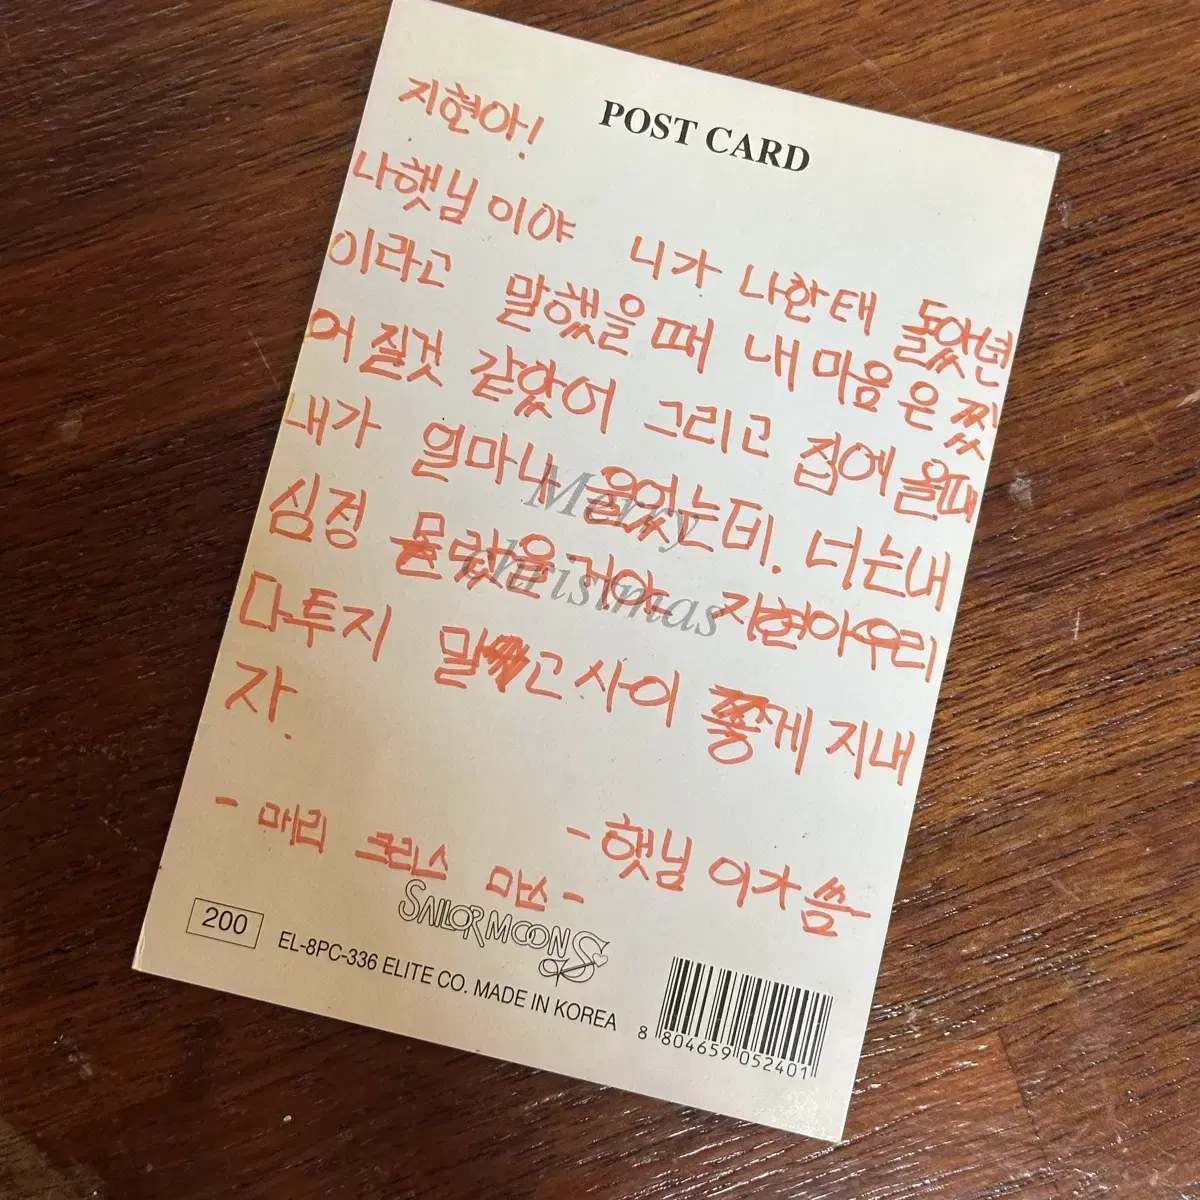 POST CARD
지현아!
나햇님이야 니가 나한태 돌았년
이라고 말했을때 내마음은 찢
어질것 같았어 그리고 집에올때
내가 얼마나 울었는데. 너는내
심정 몰랐을거야 지현아우리
다투지 말고 사이 좋게 지내
자.
Merry
christmas
- 햇님이가씀-
- 매리 크리스 마스 -
SAILOR MOON S
200
EL-8PC-336 ELITE CO. MADE IN KOREA
8 804659 052401